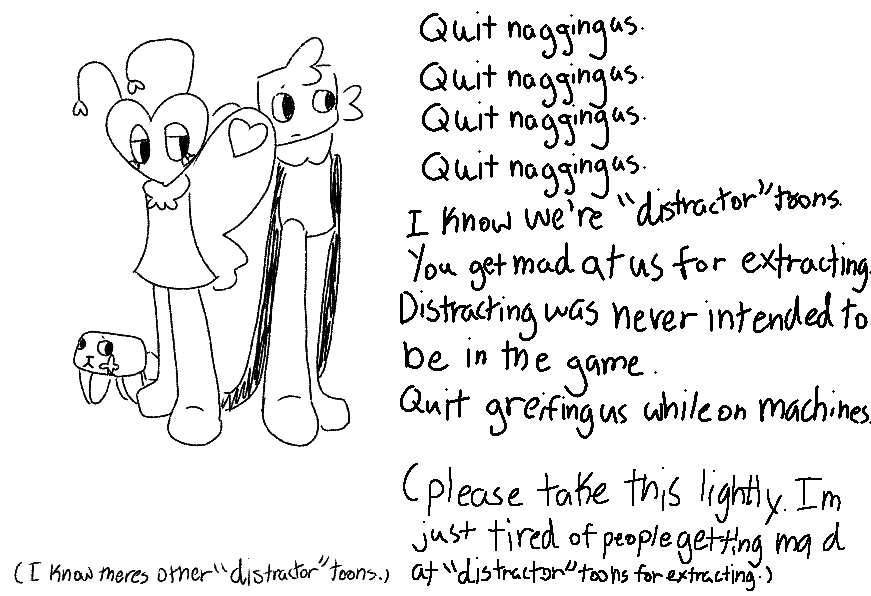 Quit nagging us.
Quit nagging us.
Quit nagging us.
Quit nagging us.
I know we're "distractor" toons.
You get mad at us for extracting.
Distracting was never intended to
be in the game.
Quit greifing us while on machines.
(please take this lightly. Im
just tired of people getting mad
at "distractor" toons for extracting.)
(I know theres other "distractor" toons.)